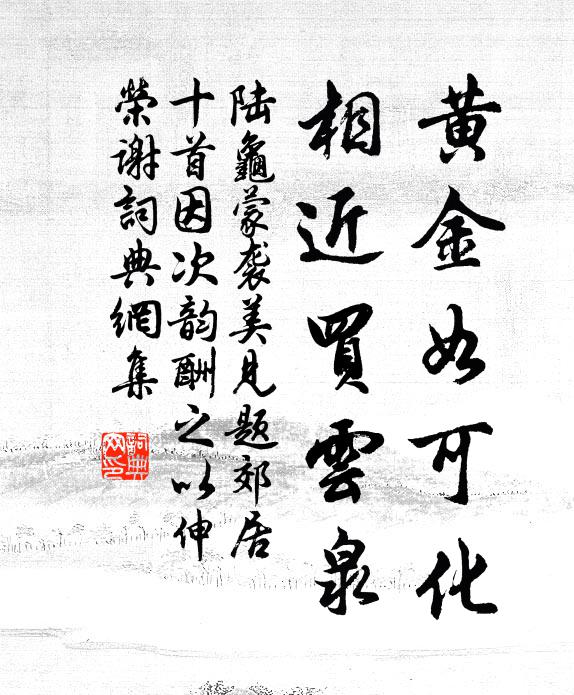 黄金如可化
相近買雲泉
陆龜蒙袭美見題郊居
十首因次韵酬之以伸
榮谢詞典網集
詞典
网印